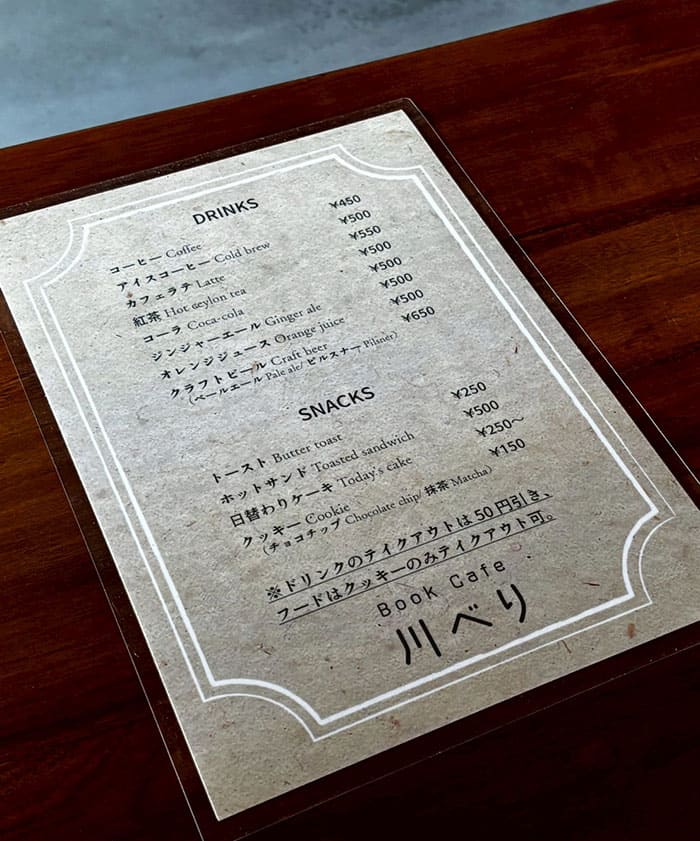 DRINKS
コーヒー Coffee ¥450
アイスコーヒー Cold brew ¥500
カフェラテ Latte ¥550
紅茶 Hot ceylon tea ¥500
コーラ Coca-cola ¥500
ジンジャーエール Ginger ale ¥500
オレンジジュース Orange juice ¥500
クラフトビール Craft beer ¥650
(ペールエール Pale ale/ ピルスナー Pilsner)
SNACKS
トースト Butter toast ¥250
ホットサンド Toasted sandwich ¥500
日替わりケーキ Today's cake ¥250〜
クッキー Cookie ¥150
(チョコチップ Chocolate chip/ 抹茶 Matcha)
※ドリンクのテイクアウトは50円引き、
フードはクッキーのみテイクアウト可。
Book Cafe
川べり